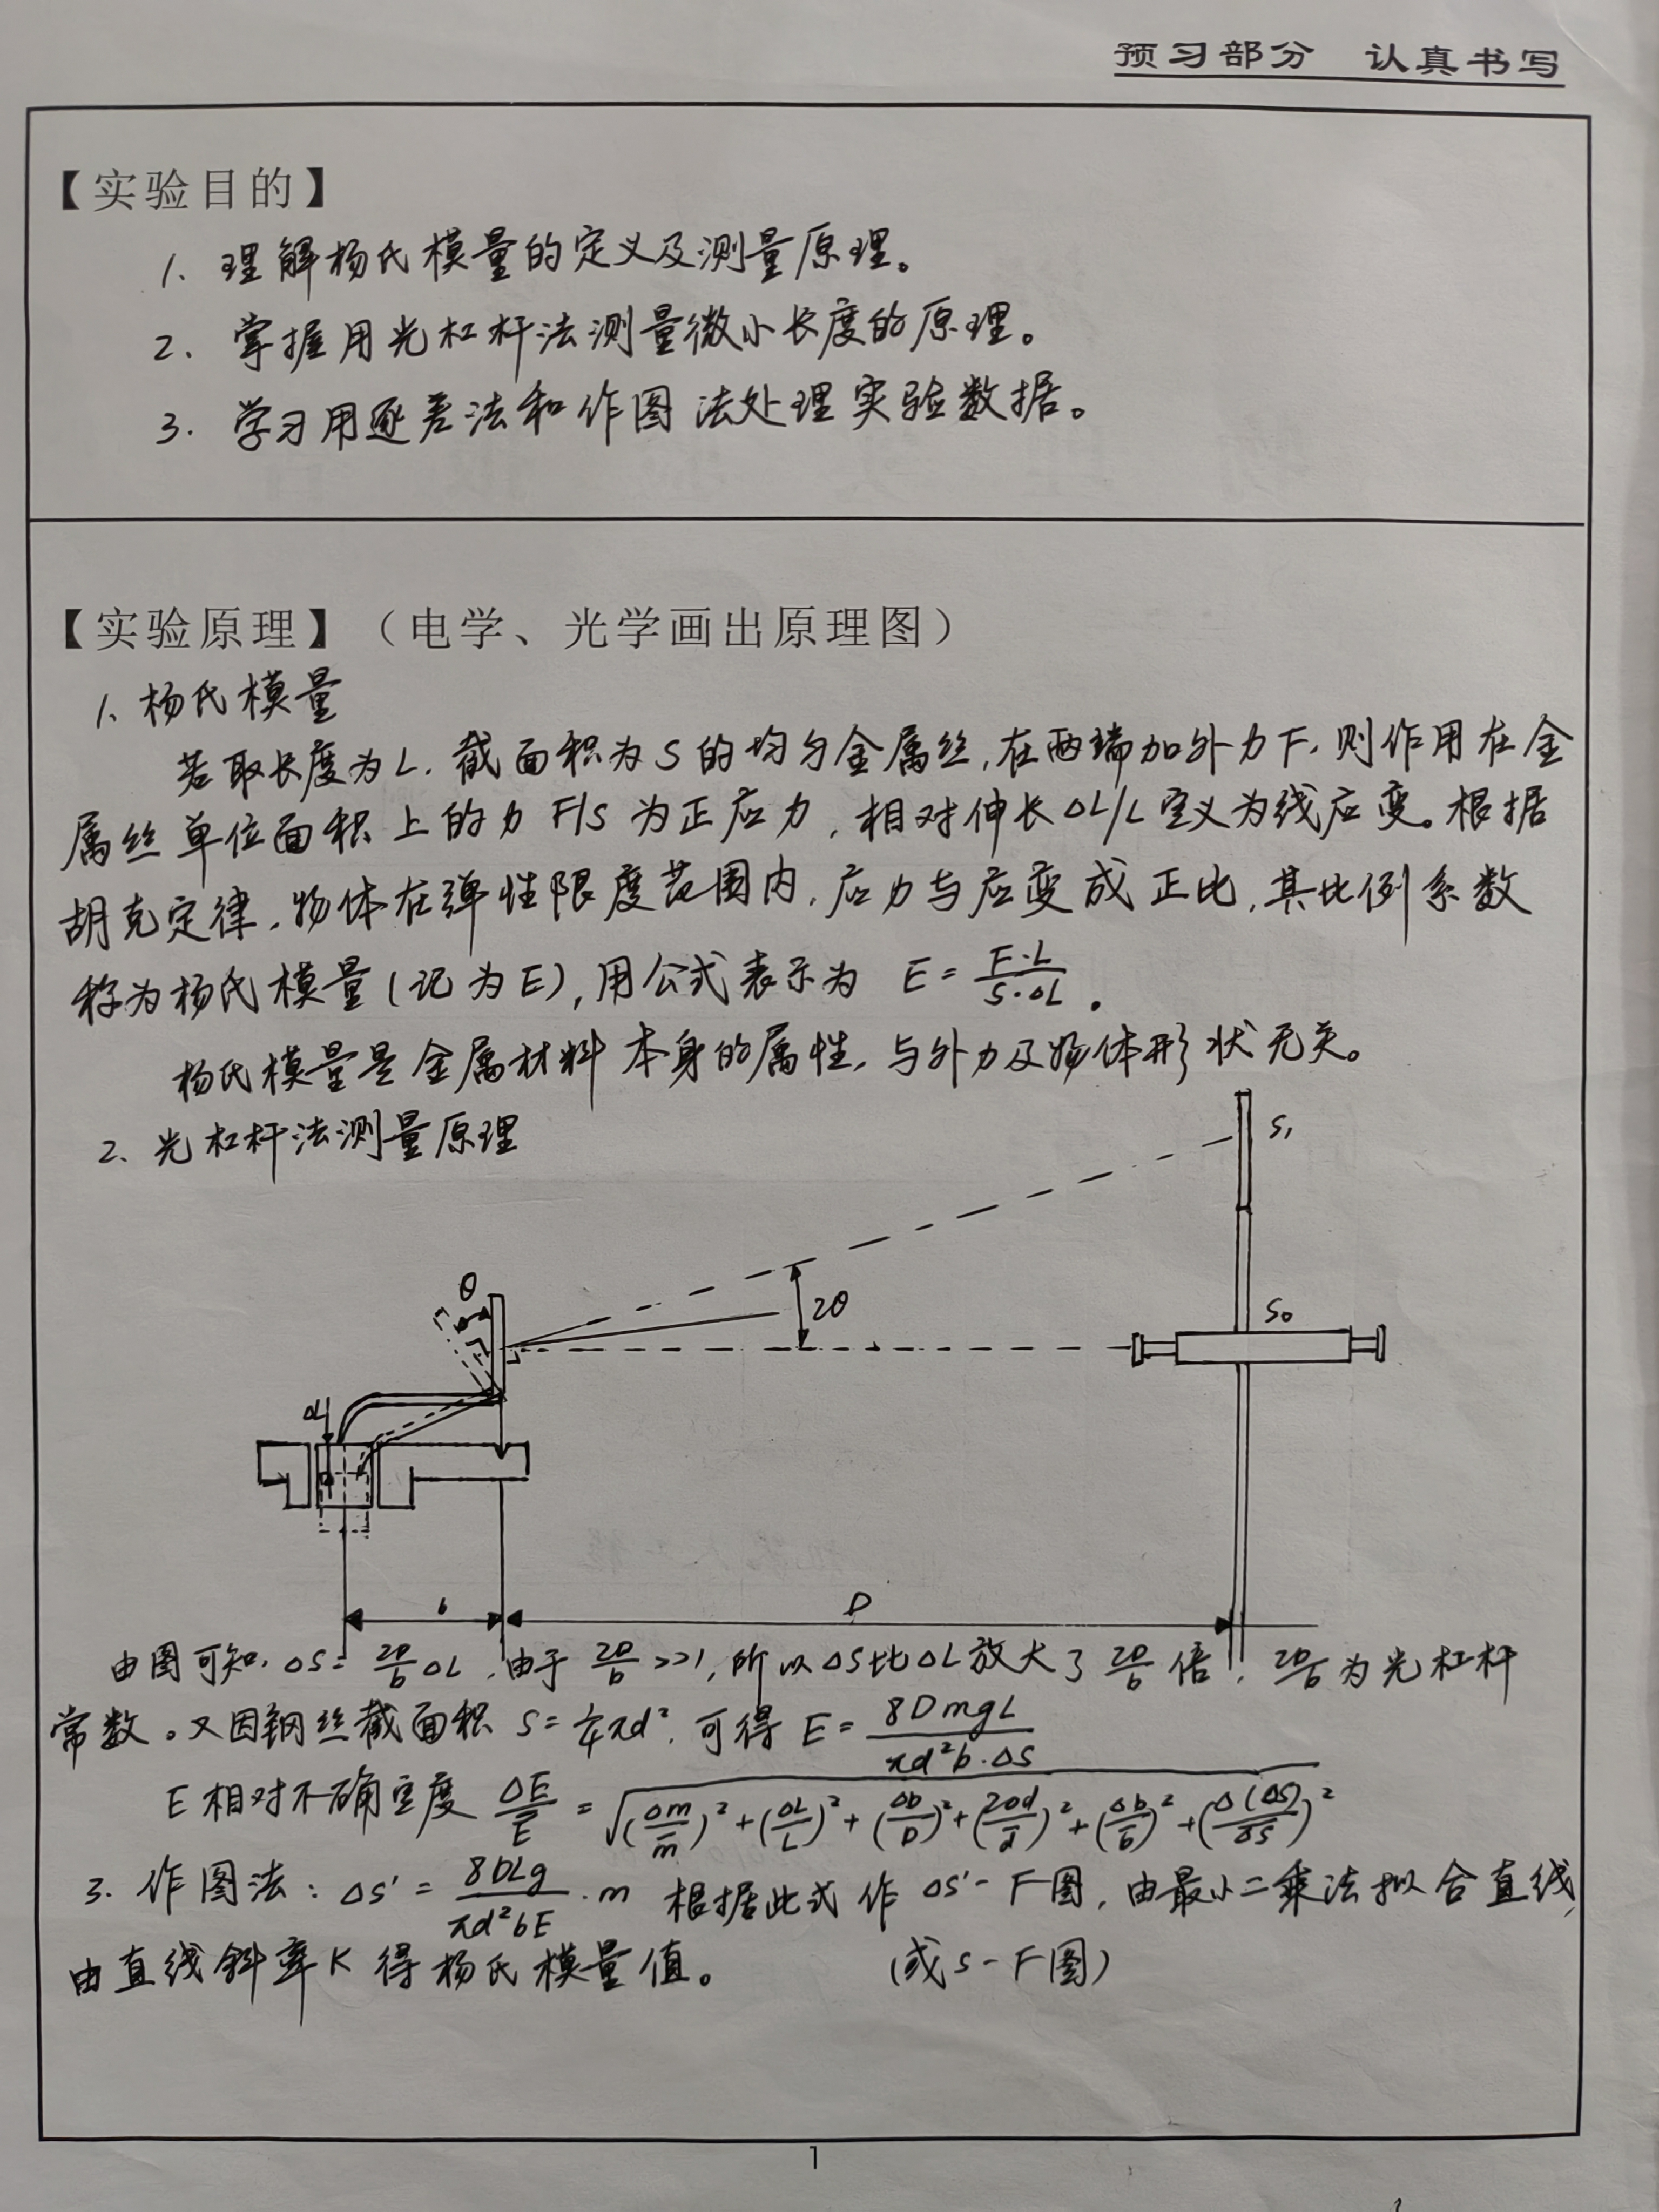 预习部分 认真书写
【实验目的】
1、理解杨氏模量的定义及测量原理。
2、掌握用光杠杆法测量微小长度的原理。
3. 学习用逐差法和作图法处理实验数据。
【实验原理】（电学、光学画出原理图）
1、杨氏模量
若取长度为L，截面积为S的均匀金属丝，在两端加外力F，则作用在金
属丝单位面积上的力 F/S 为正应力，相对伸长ΔL/L定义为线应变。根据
胡克定律，物体在弹性限度范围内，应力与应变成正比，其比例系数
称为杨氏模量(记为E)，用公式表示为 E = F·L / S·ΔL 。
杨氏模量是金属材料本身的属性，与外力及物体形状无关。
2、光杠杆法测量原理
S₁
θ
2θ
S₀
ΔL
b
D
由图可知，ΔS = 2D/b ΔL，由于 2D/b >>1，所以ΔS比ΔL放大了 2D/b 倍，2D/b 为光杠杆
常数。又因钢丝截面积 S = 1/4 πd²，可得 E = 8DmgL / πd²b·ΔS
E相对不确定度 ΔE/E = √((Δm/m)² + (ΔL/L)² + (ΔD/D)² + (2Δd/d)² + (Δb/b)² + (Δ(ΔS)/ΔS)²)
3. 作图法：ΔS' = 8DLg / πd²bE · m 根据此式作 ΔS'-F图，由最小二乘法拟合直线，
由直线斜率K得杨氏模量值。 (或S-F图)
1